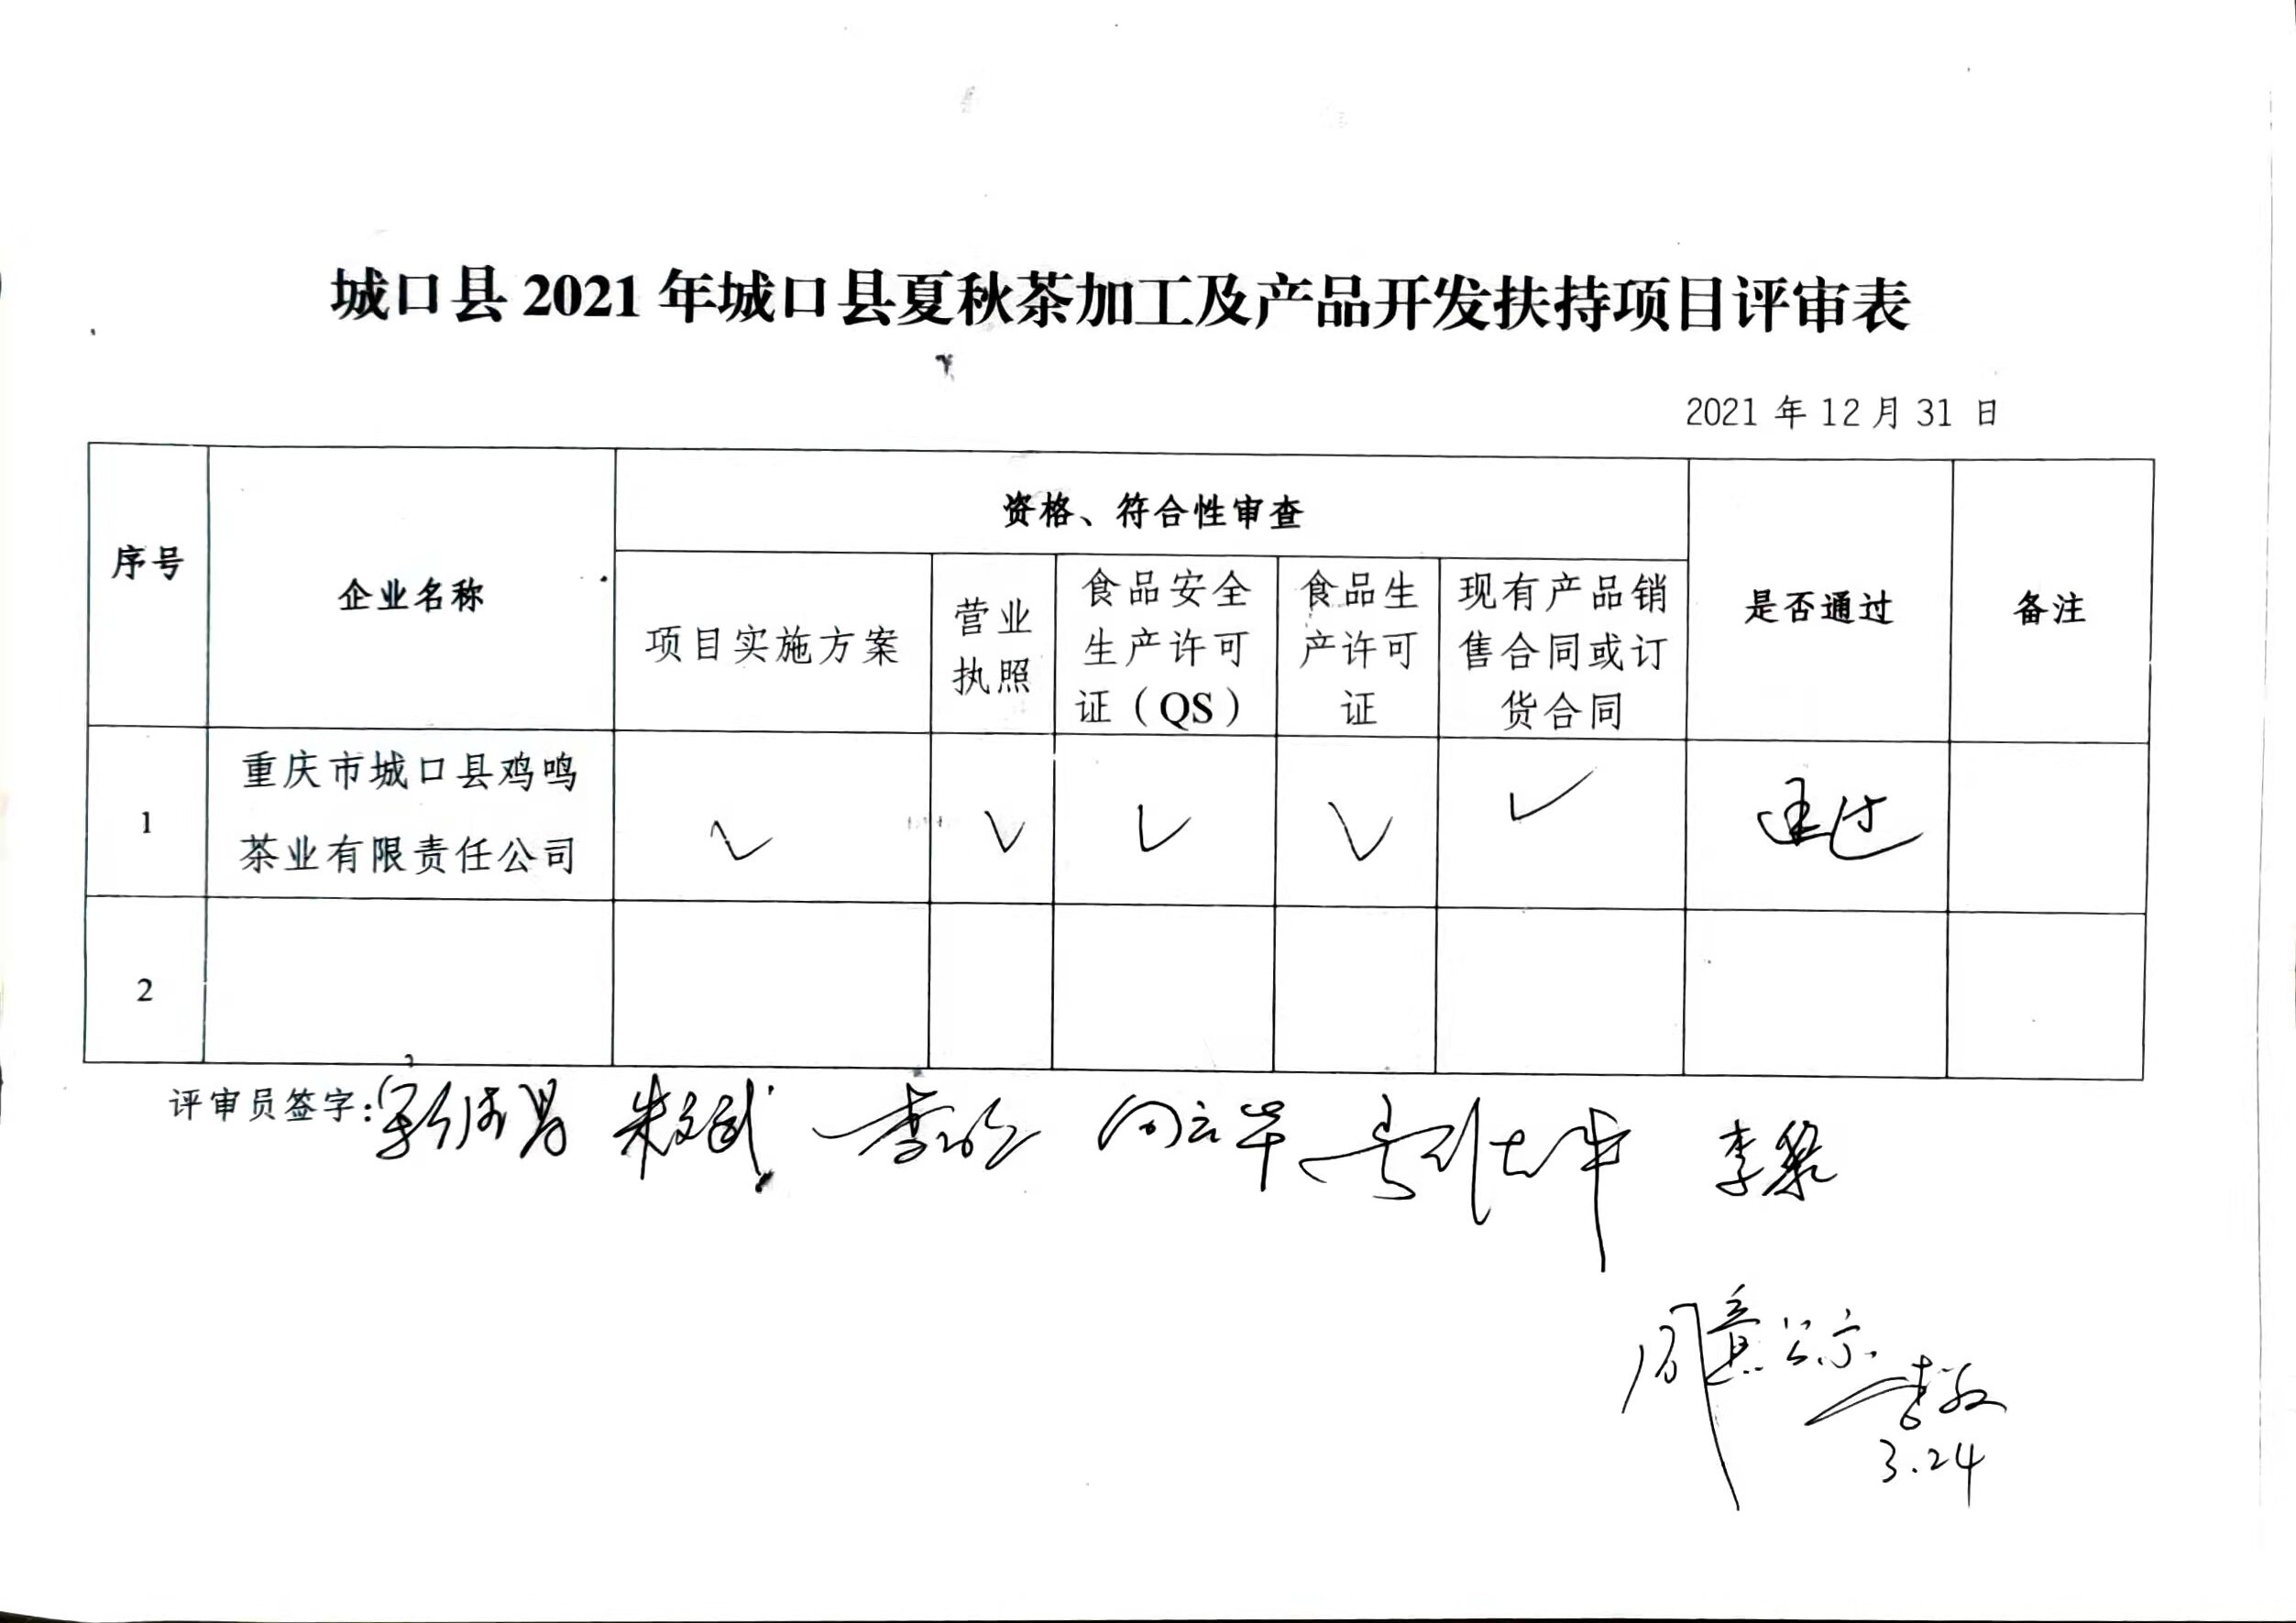 城口县 2021 年城口县夏秋茶加工及产品开发扶持项目评审表
2021 年 12 月 31 日
序号
企业名称
资格、符合性审查
是否通过
备注
项目实施方案
营业
执照
食品安全
生产许可
证（QS）
食品生
产许可
证
现有产品销
售合同或订
货合同
1
重庆市城口县鸡鸣
茶业有限责任公司
✓ ✓ ✓ ✓ ✓
通过
2
评审员签字: 朱文斌 李黎
同意公示
李敏
3.24